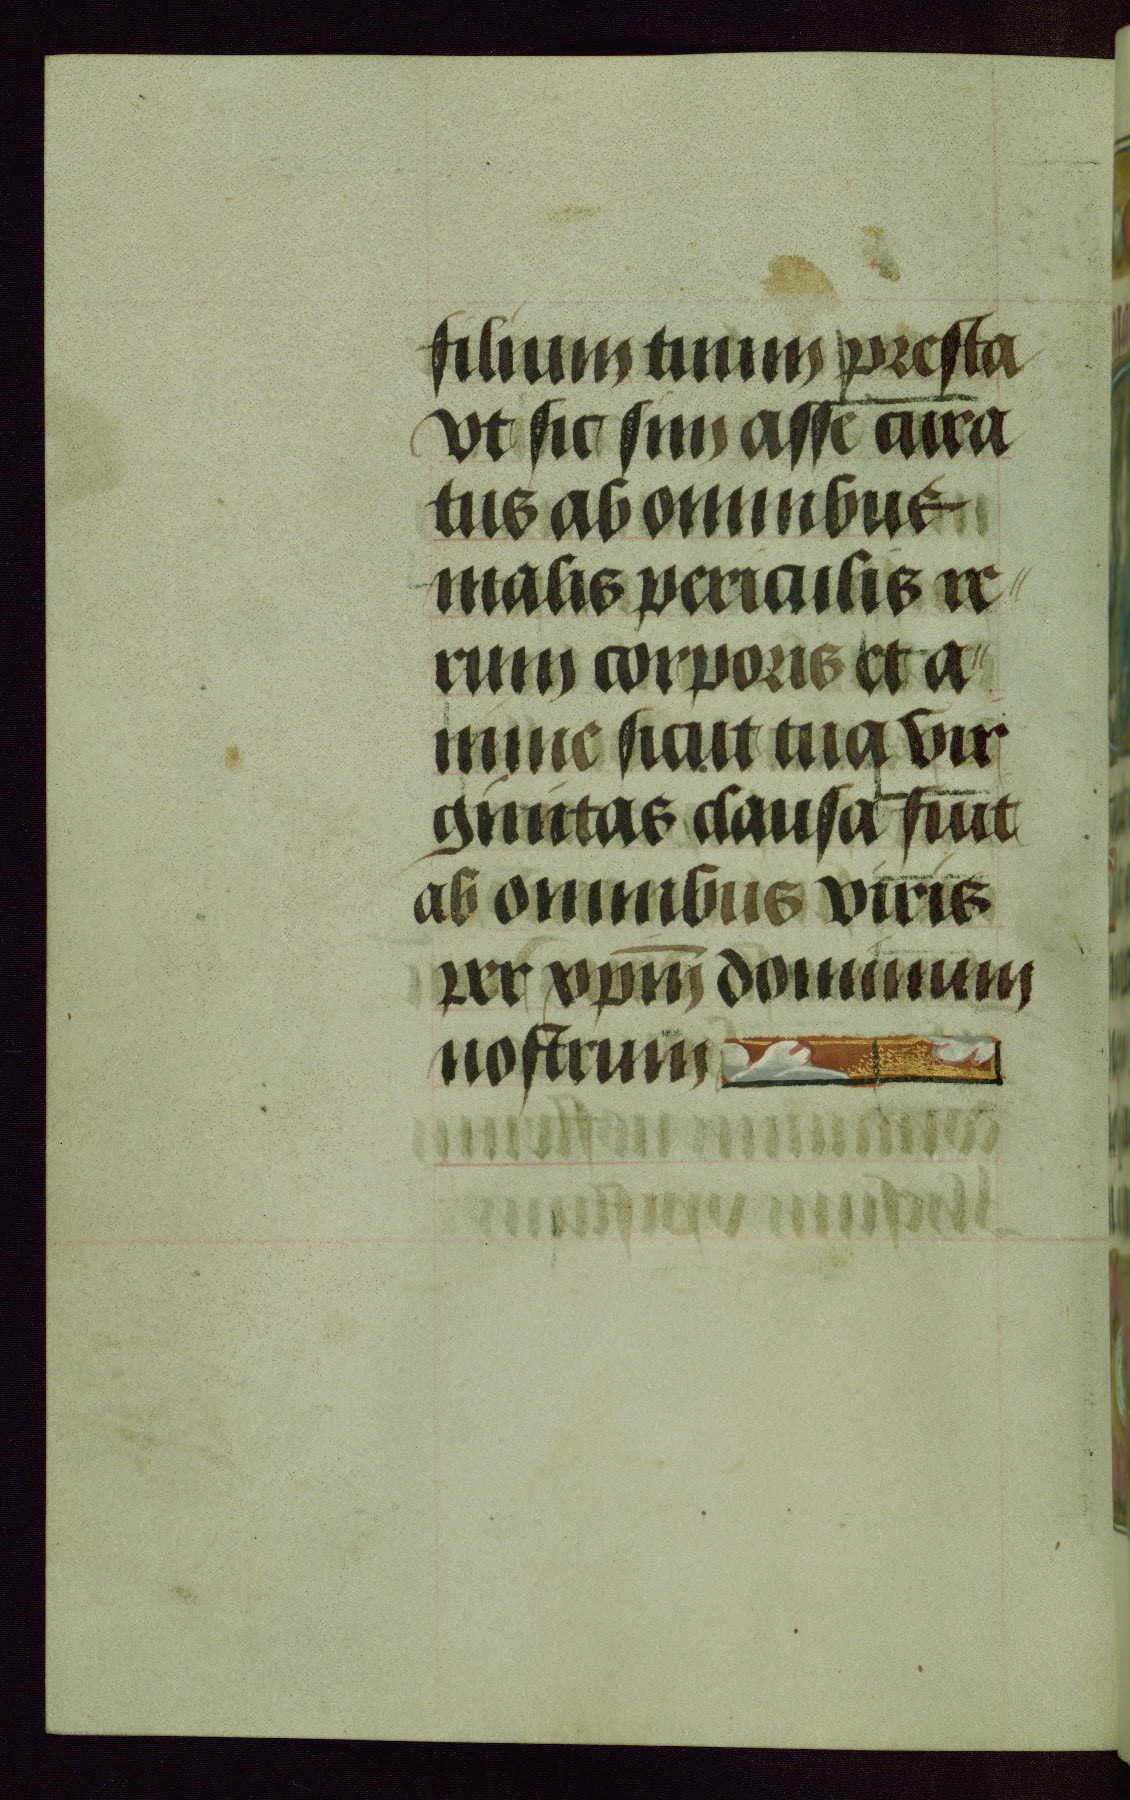 filium tuum presta
vt sic sim asse cura
tus ab omnibus
malis periculis re
rum corporis et a
nime sicut tua vir
ginitas clausa fuit
ab omnibus viris
per xpm̄ dominum
nostrum